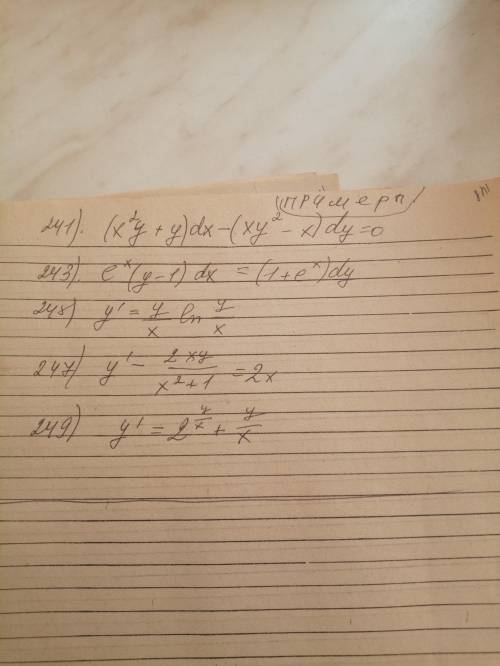 примеры
241). (x²y + y)dx − (xy² − x)dy = 0
243). eˣ(y − 1)dx = (1 + eˣ)dy
248) y' = y/x ln y/x
247) y' − 2xy/(x² + 1) = 2x
249) y' = 2^(y/x) + y/x